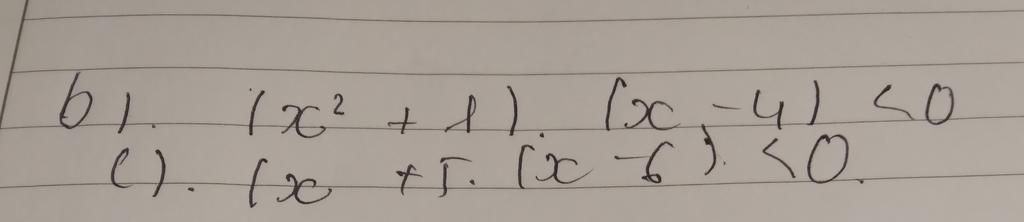 b). (x² + 1). (x - 4) < 0
c). (x + 5. (x - 6). < 0.